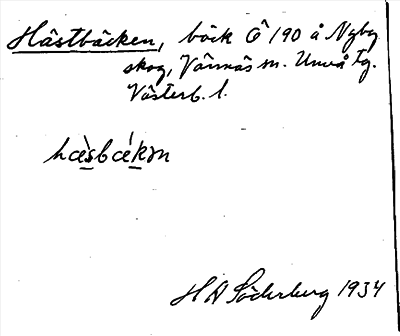 Hästbäcken, bäck Ö 190 å Nyby
skog, Vännäs sn. Umeå tg.
Västerb. l.
hæ̀sbækən
H A Söderberg 1934